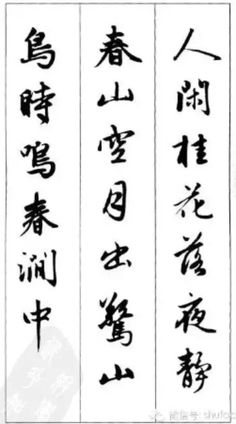 人閑桂花落夜靜
春山空月出驚山
鳥時鳴春澗中
微信号: